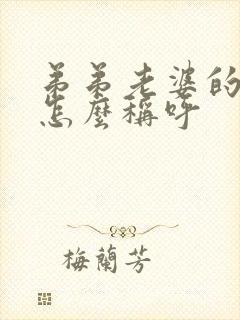 弟弟老婆的
怎麼稱呼
梅蘭芳